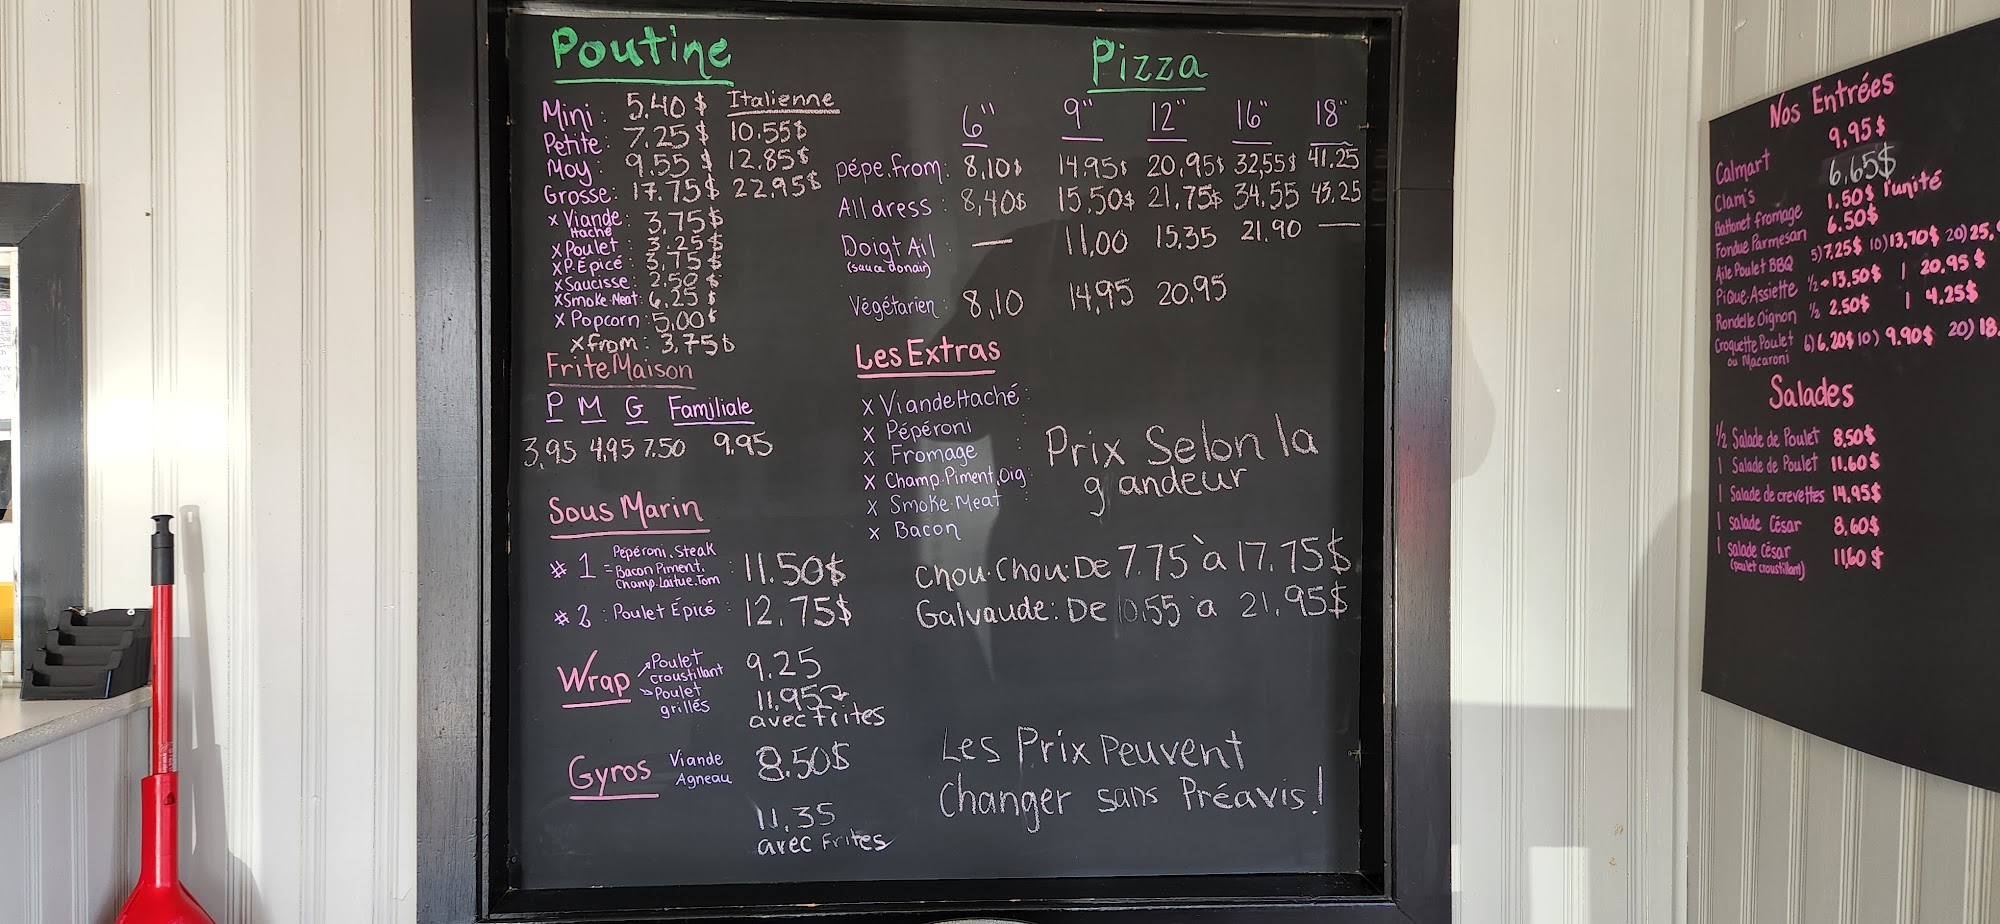 Poutine
Italienne
Mini: 5.40$
Petite: 7.25$ 10.55$
Moy: 9.55$ 12.85$
Grosse: 17.75$ 22.95$
x Viande Haché: 3.75$
x Poulet: 3.25$
x P.Epicé: 3,75$
x Saucisse: 2.50$
x Smoke-Meat: 6.25$
x Popcorn: 5,00$
x from: 3,75$
Frite Maison
P M G Familiale
3,95 4,95 7.50 9,95
Sous Marin
# 1 = Pepéroni, Steak
Bacon Piment,
Champ. Laitue. Tom
11.50$
# 2 : Poulet Épicé : 12.75$
Wrap
Poulet croustillant
Poulet grillés
9.25
11.95
avec frites
Gyros Viande Agneau 8.50$
11.35
avec Frites
Pizza
6" 9" 12" 16" 18"
pépe.from: 8,10$ 14.95$ 20,95$ 32,55$ 41.25
All dress: 8,40$ 15.50$ 21.75$ 34.55 43.25
Doigt Ail : — 11,00 15,35 21.90 —
(sauce donair)
Végétarien: 8,10 14,95 20.95
Les Extras
x Viande Haché :
x Pépéroni
x Fromage :
x Champ.Piment.Oig:
x Smoke-Meat :
x Bacon
Prix Selon la
g andeur
Chou.Chou: De 7.75 à 17.75$
Galvaude: De 10.55 a 21.95$
Les Prix Peuvent
Changer sans Préavis!
Nos Entrées
Calmart 9,95$
Clam's 6,65$
Battonet fromage 1.50$ l'unité
Fondue Parmesan 6.50$
Aile Poulet BBQ 5) 7,25$ 10) 13,70$ 20) 25.
Pique-Assiette ½ → 13,50$ 1 20.95$
Rondelle Oignon ½ 2.50$ 1 4.25$
Croquette Poulet 6) 6,20$ 10) 9.90$ 20) 18.
ou Macaroni
Salades
½ Salade de Poulet 8,50$
1 Salade de Poulet 11.60$
1 Salade de crevettes 14,95$
1 salade César 8,60$
1 salade César 11,60$
(poulet croustillant)